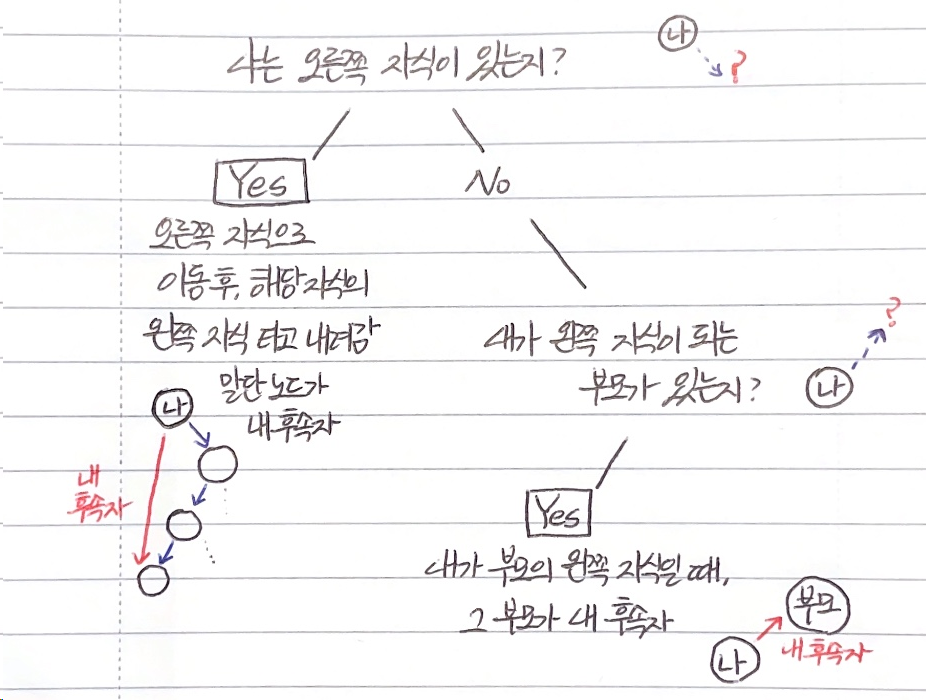 나는 오른쪽 자식이 있는지?
나
?
Yes
No
오른쪽 자식으로
이동 후, 해당 자식의
왼쪽 자식 타고 내려감
말단 노드가
내 후속자
나
내
후속자
내가 왼쪽 자식이 되는
부모가 있는지?
?
나
Yes
내가 부모의 왼쪽 자식일 때,
그 부모가 내 후속자
부모
나
내 후속자